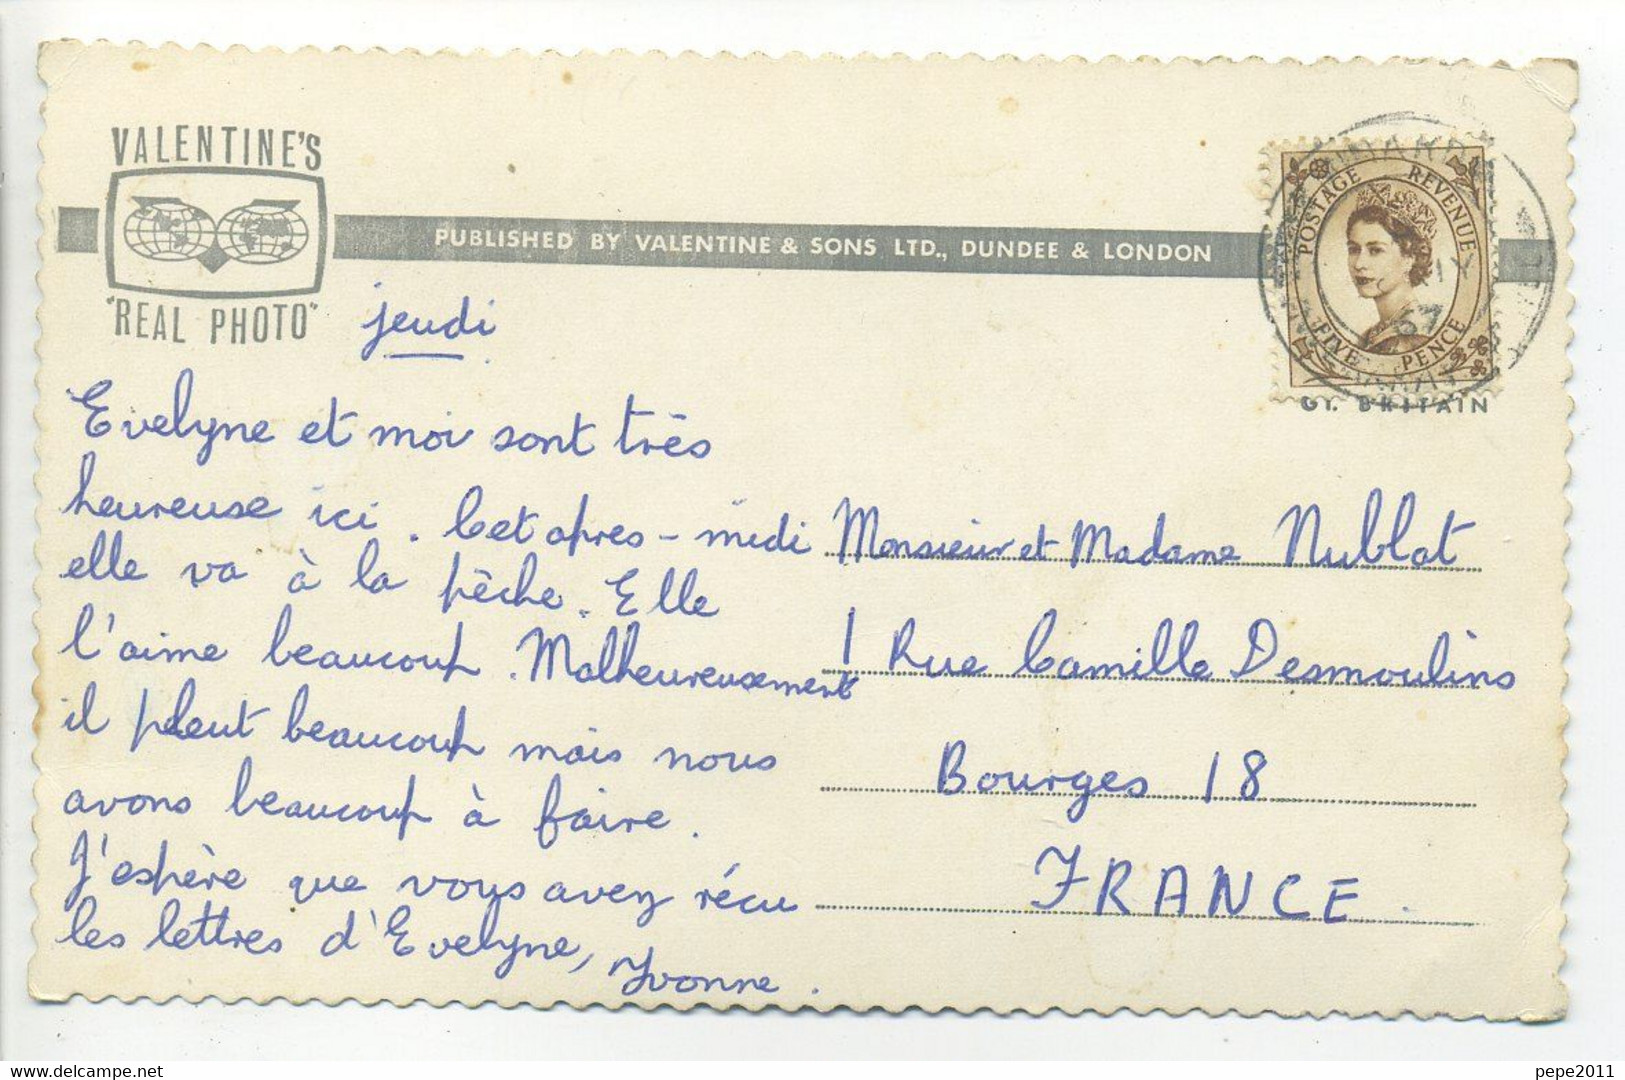 VALENTINE'S
"REAL PHOTO"
PUBLISHED BY VALENTINE & SONS LTD., DUNDEE & LONDON
POSTAGE REVENUE
FIVE PENCE
GT. BRITAIN
jeudi
Evelyne et moi sont très
heureuse ici. Cet après-midi
elle va à la pêche. Elle
l'aime beaucoup. Malheureusement
il pleut beaucoup mais nous
avons beaucoup à faire.
J'espère que vous avez récu
les lettres d'Evelyne,
Yvonne.
Monsieur et Madame Nublat
1 Rue Camille Desmoulins
Bourges 18
FRANCE.
delcampe.net
pepe2011